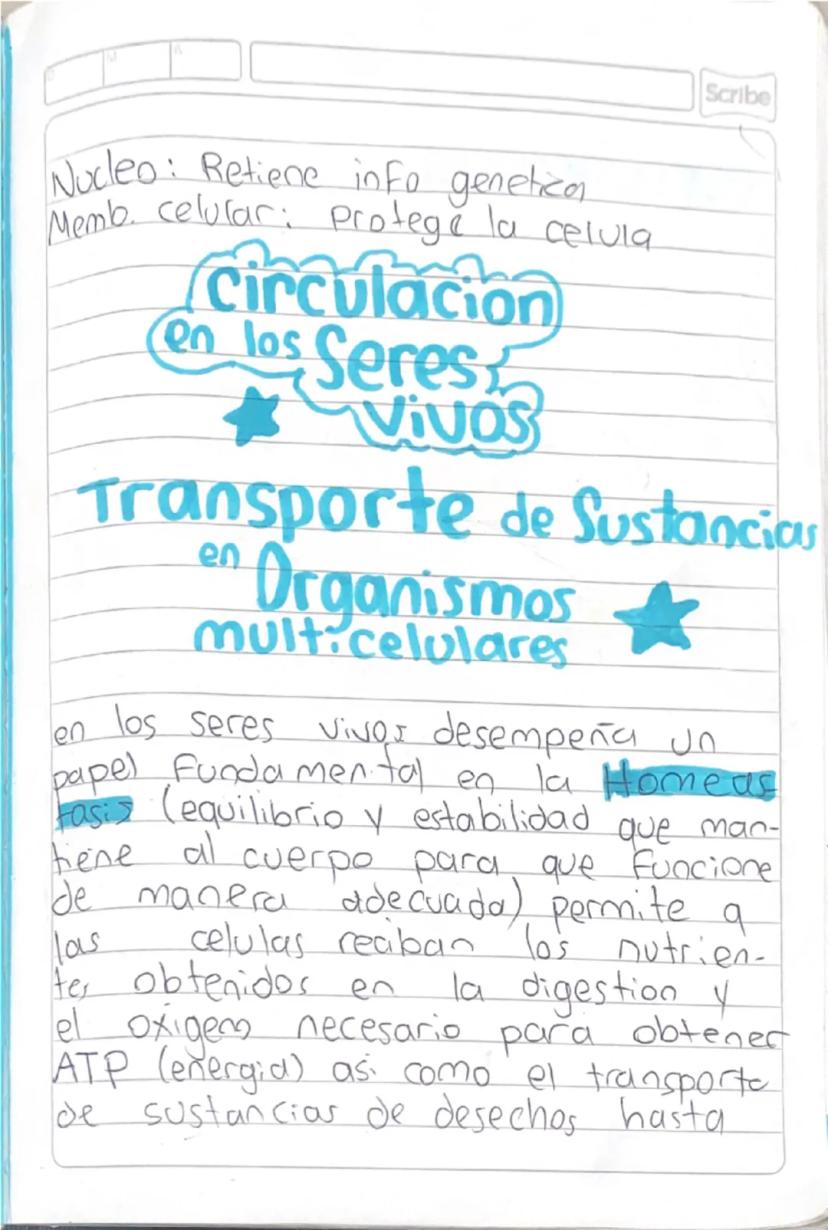 D
M
A
Scribe
Nucleo: Retiene info genetica
Memb. celular: Protege la celula
Circulacion
en los Seres
Vivos
Transporte de Sustancias
en Organismos
multicelulares
en los seres vivos desempeña un
papel Fundamental en la Homeas
tasis (equilibrio y estabilidad que man-
tiene al cuerpo para que funcione
de manera adecuada) permite a
las celulas reciban los nutrien-
tes obtenidos en la digestion y
el oxigeno necesario para obtener
ATP (energia) asi como el transporte
de sustancias de desechos hasta